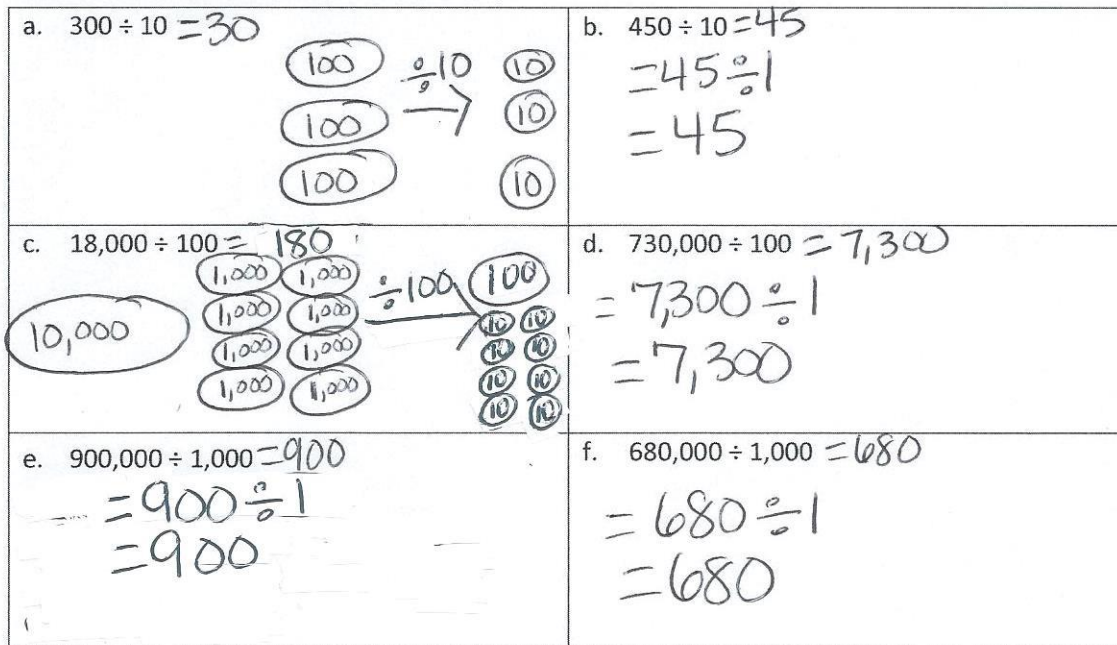 a. 300 ÷ 10 = 30
100 ÷10 10
100 10
100 10
b. 450 ÷ 10 = 45
= 45 ÷ 1
= 45
c. 18,000 ÷ 100 = 180
10,000
1,000 1,000
1,000 1,000
1,000 1,000
1,000 1,000
÷100
100
10 10
10 10
10 10
10 10
d. 730,000 ÷ 100 = 7,300
= 7,300 ÷ 1
= 7,300
e. 900,000 ÷ 1,000 = 900
= 900 ÷ 1
= 900
f. 680,000 ÷ 1,000 = 680
= 680 ÷ 1
= 680